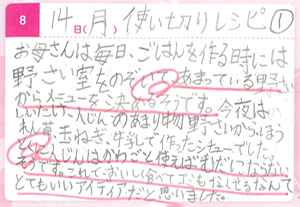 8
14日(月) 使い切りレシピ①
お母さんは毎日、ごはんを作る時には
野さい室をのぞいてあまっている野さい
からメニューを決めるそうです。今夜は
しいたけ、人じんのあまり物野さいからほう
玉ねぎ、牛乳で作ったシチューでした。
人じんはかわごと使えばむだにならない
そうです。これでおいしく食べてゴミもなくせるなんて
とてもいいアイディアだと思いました。